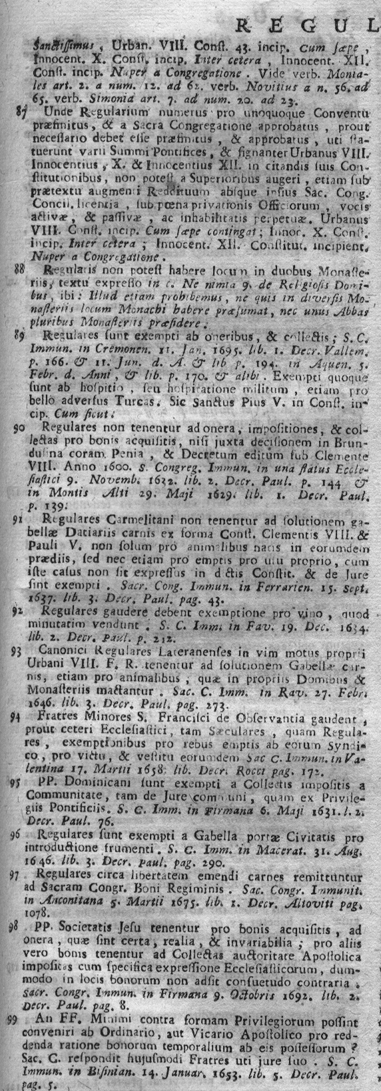 REGUL
Sanctissimus, Urban. VIII. Const. 43. incip. Cum sæpe,
Innocent. X. Const. incip. Inter cetera, Innocent. XII.
Const. incip. Nuper a Congregatione. Vide verb. Monia-
les art. 2. a num. 12. ad 62. verb. Novitius a n. 56. ad
65. verb. Simonia art. 7. ad num. 20. ad 23.
87 Unde Regularium numerus pro unoquoque Conventu
præfinitus, & a Sacra Congregatione approbatus, prout
necessario debet esse præfinitus, & approbatus, uti sta-
tuerunt varii Summi Pontifices, & signanter Urbanus VIII.
Innocentius, X. & Innocentius XII. in citandis suis Con-
stitutionibus, non potest a Superioribus augeri, etiam sub
prætextu augmenti Reddituum absque ipsius Sac. Cong.
Concil. licentia, sub pœna privationis Officiorum, vocis
activæ, & passivæ, ac inhabilitatis perpetuæ. Urbanus
VIII. Const. incip. Cum sæpe contingat; Innoc. X. Const.
incip. Inter cetera; Innocent. XII. Constitut. incipient.
Nuper a Congregatione.
88 Regularis non potest habere locum in duobus Monaste-
riis, textu expresso in c. Ne nimia 9. de Religiosis Domi-
bus, ibi: Illud etiam probibemus, ne quis in diversis Mo-
nasteriis locum Monachi habere præsumat, nec unus Abbas
pluribus Monasteriis præsidere.
89 Regulares sunt exempti ab oneribus, & collectis; S. C.
Immun. in Cremonen. 11. Jan. 1695. lib. 1. Decr. Vallem.
p. 166. & 11. Jun. d. A. & lib. p. 194. in Aquen. 5.
Febr. d. Anni, & lib. p. 170. & alibi. Exempti quoque
sunt ab hospitio, seu hospitatione militum, etiam pro
bello adversus Turcas. Sic Sanctus Pius V. in Const. in-
cip. Cum sicut.
90 Regulares non tenentur ad onera, impositiones, & col-
lectas pro bonis acquisitis, nisi juxta decisionem in Brun-
dusina coram Penia, & Decretum editum sub Clemente
VIII. Anno 1600. S. Congreg. Immun. in una status Eccle-
siastici 9. Novemb. 1632. lib. 2. Decr. Paul. p. 144 &
in Montis Alti 29. Maji 1629. lib. 1. Decr. Paul.
p. 139.
91 Regulares Carmelitani non tenentur ad solutionem ga-
bellæ Datiariis carnis ex forma Const. Clementis VIII. &
Pauli V. non solum pro animalibus natis in eorumdem
prædiis, sed nec etiam pro emptis pro usu proprio, cum
iste casus non sit expressus in dictis Constit. & de Jure
sint exempti. Sac. Cong. Immun. in Ferrarien. 15. Sept.
1637. lib. 3. Decr. Paul. pag. 43.
92 Regulares gaudere debent exemptione pro vino, quod
minutatim vendunt. S. C. Imm. in Fav. 19. Dec. 1634.
lib. 2. Decr. Paul. p. 212.
93 Canonici Regulares Lateranenses in vim motus proprii
Urbani VIII. F. R. tenentur ad solutionem Gabellæ car-
nis, etiam pro animalibus, quæ in propriis Domibus &
Monasteriis mactantur. Sac. C. Imm. in Rav. 27. Febr.
1646. lib. 3. Decr. Paul. pag. 273.
94 Fratres Minores S. Francisci de Observantia gaudent,
prout ceteri Ecclesiastici, tam Sæculares, quam Regula-
res, exemptionibus pro rebus emptis ab eorum Syndi-
co, pro victu, & vestitu eorumdem Sac C. Immun. in Va-
lentina 17. Martii 1658. lib. Decr. Rocci pag. 172.
95 PP. Dominicani sunt exempti a Collectis impositis a
Communitate, tam de Jure communi, quam ex Privile-
giis Pontificiis. S. C. Imm. in Firmana 6. Maji 1631. l. 2.
Decr. Paul. 76.
96 Regulares sunt exempti a Gabella portæ Civitatis pro
introductione frumenti. S. C. Imm. in Macerat. 31. Aug.
1646. lib. 3. Decr. Paul. pag. 290.
97 Regulares circa libertatem emendi carnes remittuntur
ad Sacram Congr. Boni Regiminis. Sac. Congr. Immunit.
in Anconitana 5. Martii 1675. lib. 1. Decr. Altoviti pag.
1078.
98 PP. Societatis Jesu tenentur pro bonis acquisitis, ad
onera, quæ sint certa, realia, & invariabilia; pro aliis
vero bonis tenentur ad Collectas auctoritate Apostolica
impositas cum specifica expressione Ecclesiasticorum, dum-
modo in locis bonorum non adsit consuetudo contraria.
Sacr. Congr. Immun. in Firmana 9. Octobris 1692. lib. 2.
Decr. Paul. pag. 8.
99 An FF. Minimi contra formam Privilegiorum possint
conveniri ab Ordinario, aut Vicario Apostolico pro red-
denda ratione bonorum temporalium ab eis possessorum?
Sac. C. respondit hujusmodi Fratres uti jure suo. S. C.
Immun. in Bisinian. 14. Januar. 1653. lib. 5. Decr. Paul.
pag. 5.